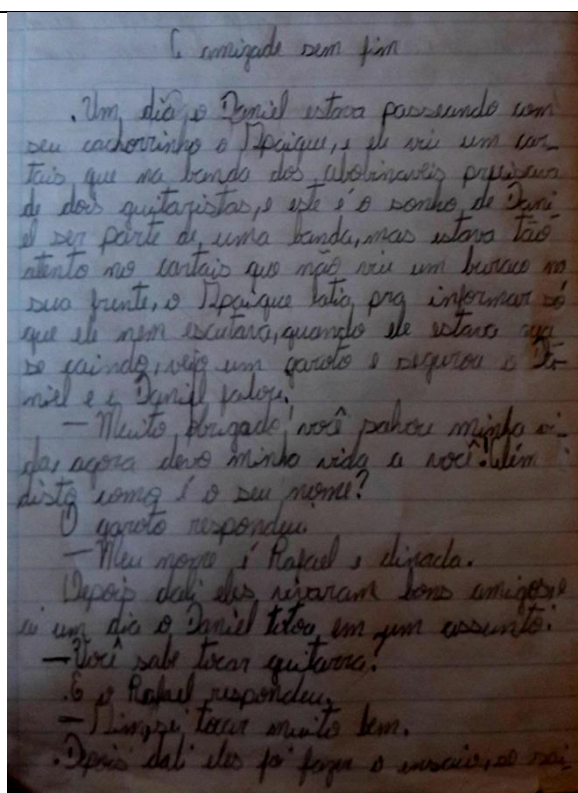 A amizade sem fim
. Um dia o Daniel estava passeando com
seu cachorrinho o Spaique, e ele viu um car_
tais que na banda dos abolinaveis precisava
de dois guitaristas, e este é o sonho de Dani
el ser parte de uma banda, mas estava tão
atento no cartais que não viu um buraco na
sua frente, o Spaique latia pra informar só
que ele nem escutava, quando ele estava qua
se caindo, vejo um garoto e segurou o Da
niel e o Daniel falou:
— Muito obrigado, você salvou minha vi_
da, agora devo minha vida a você! Além
disto como é o seu nome?
O garoto respondeu.
— Meu nome é Rafael e dinada.
Depois dali eles viraram bons amigos, e
ai um dia o Daniel tocou em um assunto:
— Você sabe tocar guitarra?
. E o Rafael respondeu,
— Sim, sei tocar muito bem.
. Depois dali eles foi fazer o ensaio, se sai_